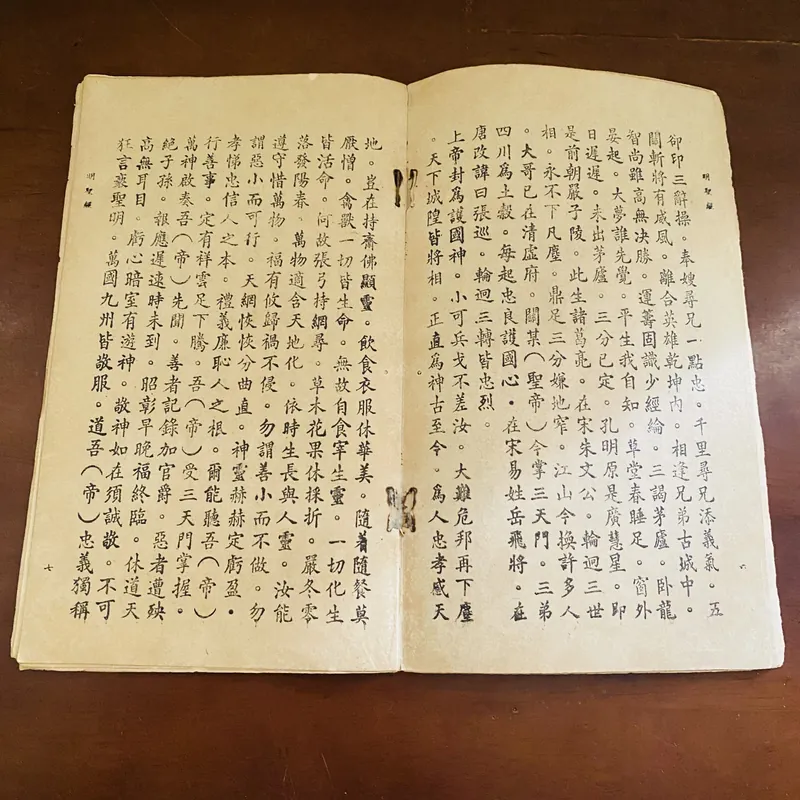 明聖經
卻印三辭操。奉嫂尋兄一點忠。千里尋兄添義氣。五
關斬將有威風。離合英雄乾坤內。相逢兄弟古城中。
智尚雖高無決勝。運籌固識少經綸。三謁茅廬。臥龍
晏起。大夢誰先覺。平生我自知。草堂春睡足。窗外
日遲遲。未出茅廬。三分已定。孔明原是廣慧星。即
是前朝嚴子陵。此生諸葛亮。在宋朱文公。輪迴三世
相。永不下凡塵。鼎足三分嫌地窄。江山今換許多人
。大哥已在清虛府。關某(聖帝)今掌三天門。三弟
四川為土穀。每起忠良護國心。在宋易姓岳飛將。在
唐改諱曰張巡。輪迴三轉皆忠烈。
上帝封為護國神。小可兵戈不差汝。大難危邦再下塵
。天下城隍皆將相。正直為神古至今。為人忠孝感天
六
明聖經
地。豈在持齋佛顯靈。飲食衣服休華美。隨着隨餐莫
厭憎。禽獸一切皆生命。無故自食宰生靈。一切化生
皆活命。何故張弓持網尋。草木花果休採折。嚴冬零
落發陽春。萬物適合天地化。依時生長與人靈。汝能
遵守惜萬物。福有攸歸禍不侵。勿謂善小而不做。勿
謂惡小而可行。天網恢恢分曲直。神靈赫赫定虧盈。
孝悌忠信人之本。禮義廉恥人之根。爾能聽吾(帝)
行善事。定有祥雲足下騰。吾(帝)受三天門掌握。
萬神啟奏吾(帝)先聞。善者記錄加官爵。惡者遭殃
絕子孫。報應遲速時未到。昭彰早晚福終臨。休道天
高無耳目。虧心暗室有遊神。敬神如在須誠敬。不可
狂言褻聖明。萬國九州皆敬服。道吾(帝)忠義獨稱
七